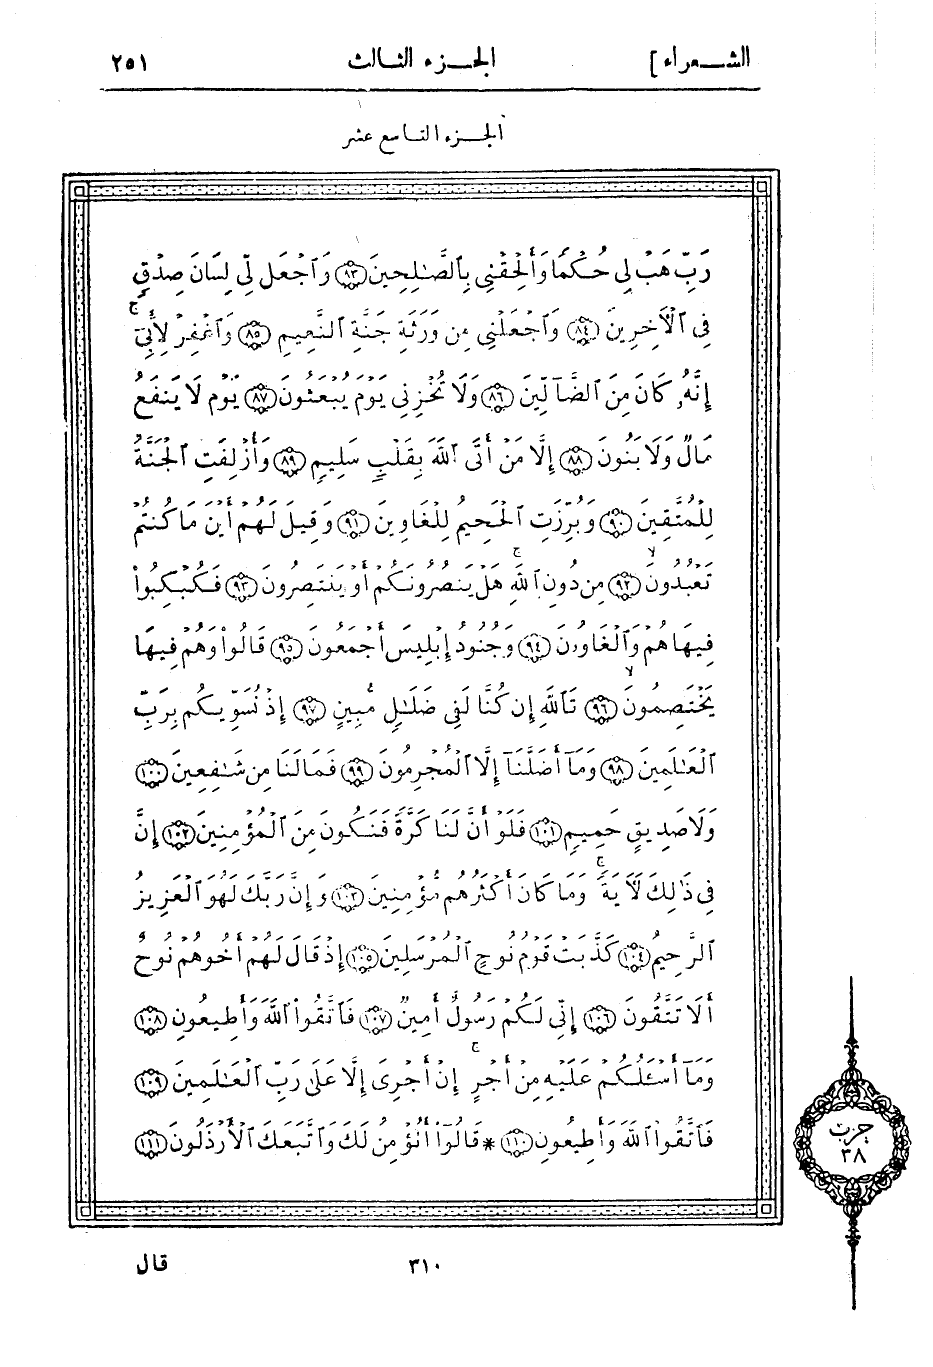 الشعراء] الجزء الثالث ٢٥١
الجزء التاسع عشر
رَبِّ هَبْ لِى حُكْمًا وَأَلْحِقْنِى بِٱلصَّٰلِحِينَ ﴿٨٣﴾ وَٱجْعَل لِّى لِسَانَ صِدْقٍ
فِى ٱلْأَخِرِينَ ﴿٨٤﴾ وَٱجْعَلْنِى مِن وَرَثَةِ جَنَّةِ ٱلنَّعِيمِ ﴿٨٥﴾ وَٱغْفِرْ لِأَبِىٓ ۚ
إِنَّهُۥ كَانَ مِنَ ٱلضَّآلِّينَ ﴿٨٦﴾ وَلَا تُخْزِنِى يَوْمَ يُبْعَثُونَ ﴿٨٧﴾ يَوْمَ لَا يَنفَعُ
مَالٌ وَلَا بَنُونَ ﴿٨٨﴾ إِلَّا مَنْ أَتَى ٱللَّهَ بِقَلْبٍ سَلِيمٍ ﴿٨٩﴾ وَأُزْلِفَتِ ٱلْجَنَّةُ
لِلْمُتَّقِينَ ﴿٩٠﴾ وَبُرِّزَتِ ٱلْجَحِيمُ لِلْغَاوِينَ ﴿٩١﴾ وَقِيلَ لَهُمْ أَيْنَ مَا كُنتُمْ
تَعْبُدُونَ ۙ ﴿٩٢﴾ مِن دُونِ ٱللَّهِ ۚ هَلْ يَنصُرُونَكُمْ أَوْ يَنتَصِرُونَ ﴿٩٣﴾ فَكُبْكِبُوا۟
فِيهَا هُمْ وَٱلْغَاوُۥنَ ﴿٩٤﴾ وَجُنُودُ إِبْلِيسَ أَجْمَعُونَ ﴿٩٥﴾ قَالُوا۟ وَهُمْ فِيهَا
يَخْتَصِمُونَ ۙ ﴿٩٦﴾ تَٱللَّهِ إِن كُنَّا لَفِى ضَلَٰلٍ مُّبِينٍ ﴿٩٧﴾ إِذْ نُسَوِّيكُم بِرَبِّ
ٱلْعَٰلَمِينَ ﴿٩٨﴾ وَمَآ أَضَلَّنَآ إِلَّا ٱلْمُجْرِمُونَ ﴿٩٩﴾ فَمَا لَنَا مِن شَٰفِعِينَ ﴿١٠٠﴾
وَلَا صَدِيقٍ حَمِيمٍ ﴿١٠١﴾ فَلَوْ أَنَّ لَنَا كَرَّةً فَنَكُونَ مِنَ ٱلْمُؤْمِنِينَ ﴿١٠٢﴾ إِنَّ
فِى ذَٰلِكَ لَأَيَةً ۚ وَمَا كَانَ أَكْثَرُهُم مُّؤْمِنِينَ ﴿١٠٣﴾ وَإِنَّ رَبَّكَ لَهُوَ ٱلْعَزِيزُ
ٱلرَّحِيمُ ﴿١٠٤﴾ كَذَّبَتْ قَوْمُ نُوحٍ ٱلْمُرْسَلِينَ ﴿١٠٥﴾ إِذْ قَالَ لَهُمْ أَخُوهُمْ نُوحٌ
أَلَا تَتَّقُونَ ﴿١٠٦﴾ إِنِّى لَكُمْ رَسُولٌ أَمِينٌ ﴿١٠٧﴾ فَٱتَّقُوا۟ ٱللَّهَ وَأَطِيعُونِ ﴿١٠٨﴾
وَمَآ أَسْـَٔلُكُمْ عَلَيْهِ مِنْ أَجْرٍ ۚ إِنْ أَجْرِىَ إِلَّا عَلَىٰ رَبِّ ٱلْعَٰلَمِينَ ﴿١٠٩﴾
فَٱتَّقُوا۟ ٱللَّهَ وَأَطِيعُونِ ﴿١١٠﴾ * قَالُوٓا۟ أَنُؤْمِنُ لَكَ وَٱتَّبَعَكَ ٱلْأَرْذَلُونَ ﴿١١١﴾
حزب
٣٨
٣١٠ قال